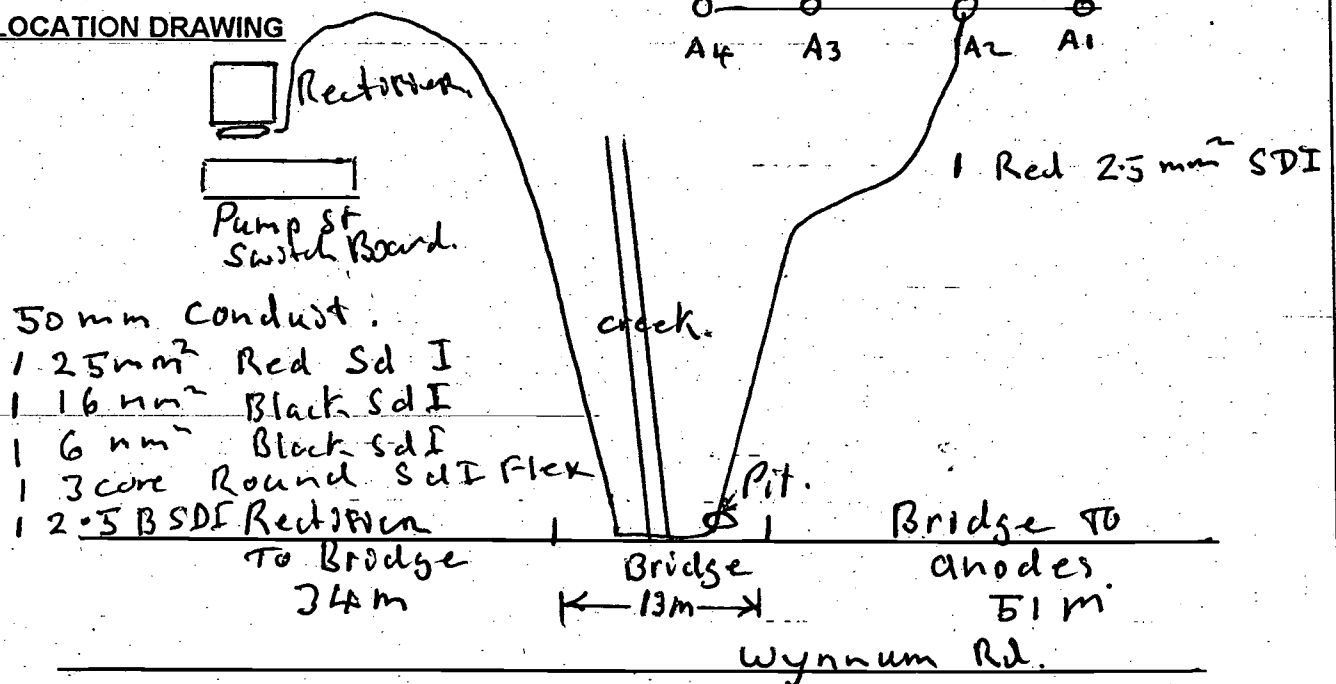 LOCATION DRAWING
A4 A3 A2 A1
Rectifier
1 Red 2.5 mm² SDI
Pump St
Switch Board.
50 mm Conduit.
1 25mm² Red Sd I
1 16 mm² Black Sd I
1 6 mm² Black Sd I
1 3 core Round Sd I Flex
1 2.5 B SDI Rectifier
To Bridge
34 m
creek.
Pit.
Bridge
13m
Bridge To
anodes.
51 m
Wynnum Rd.